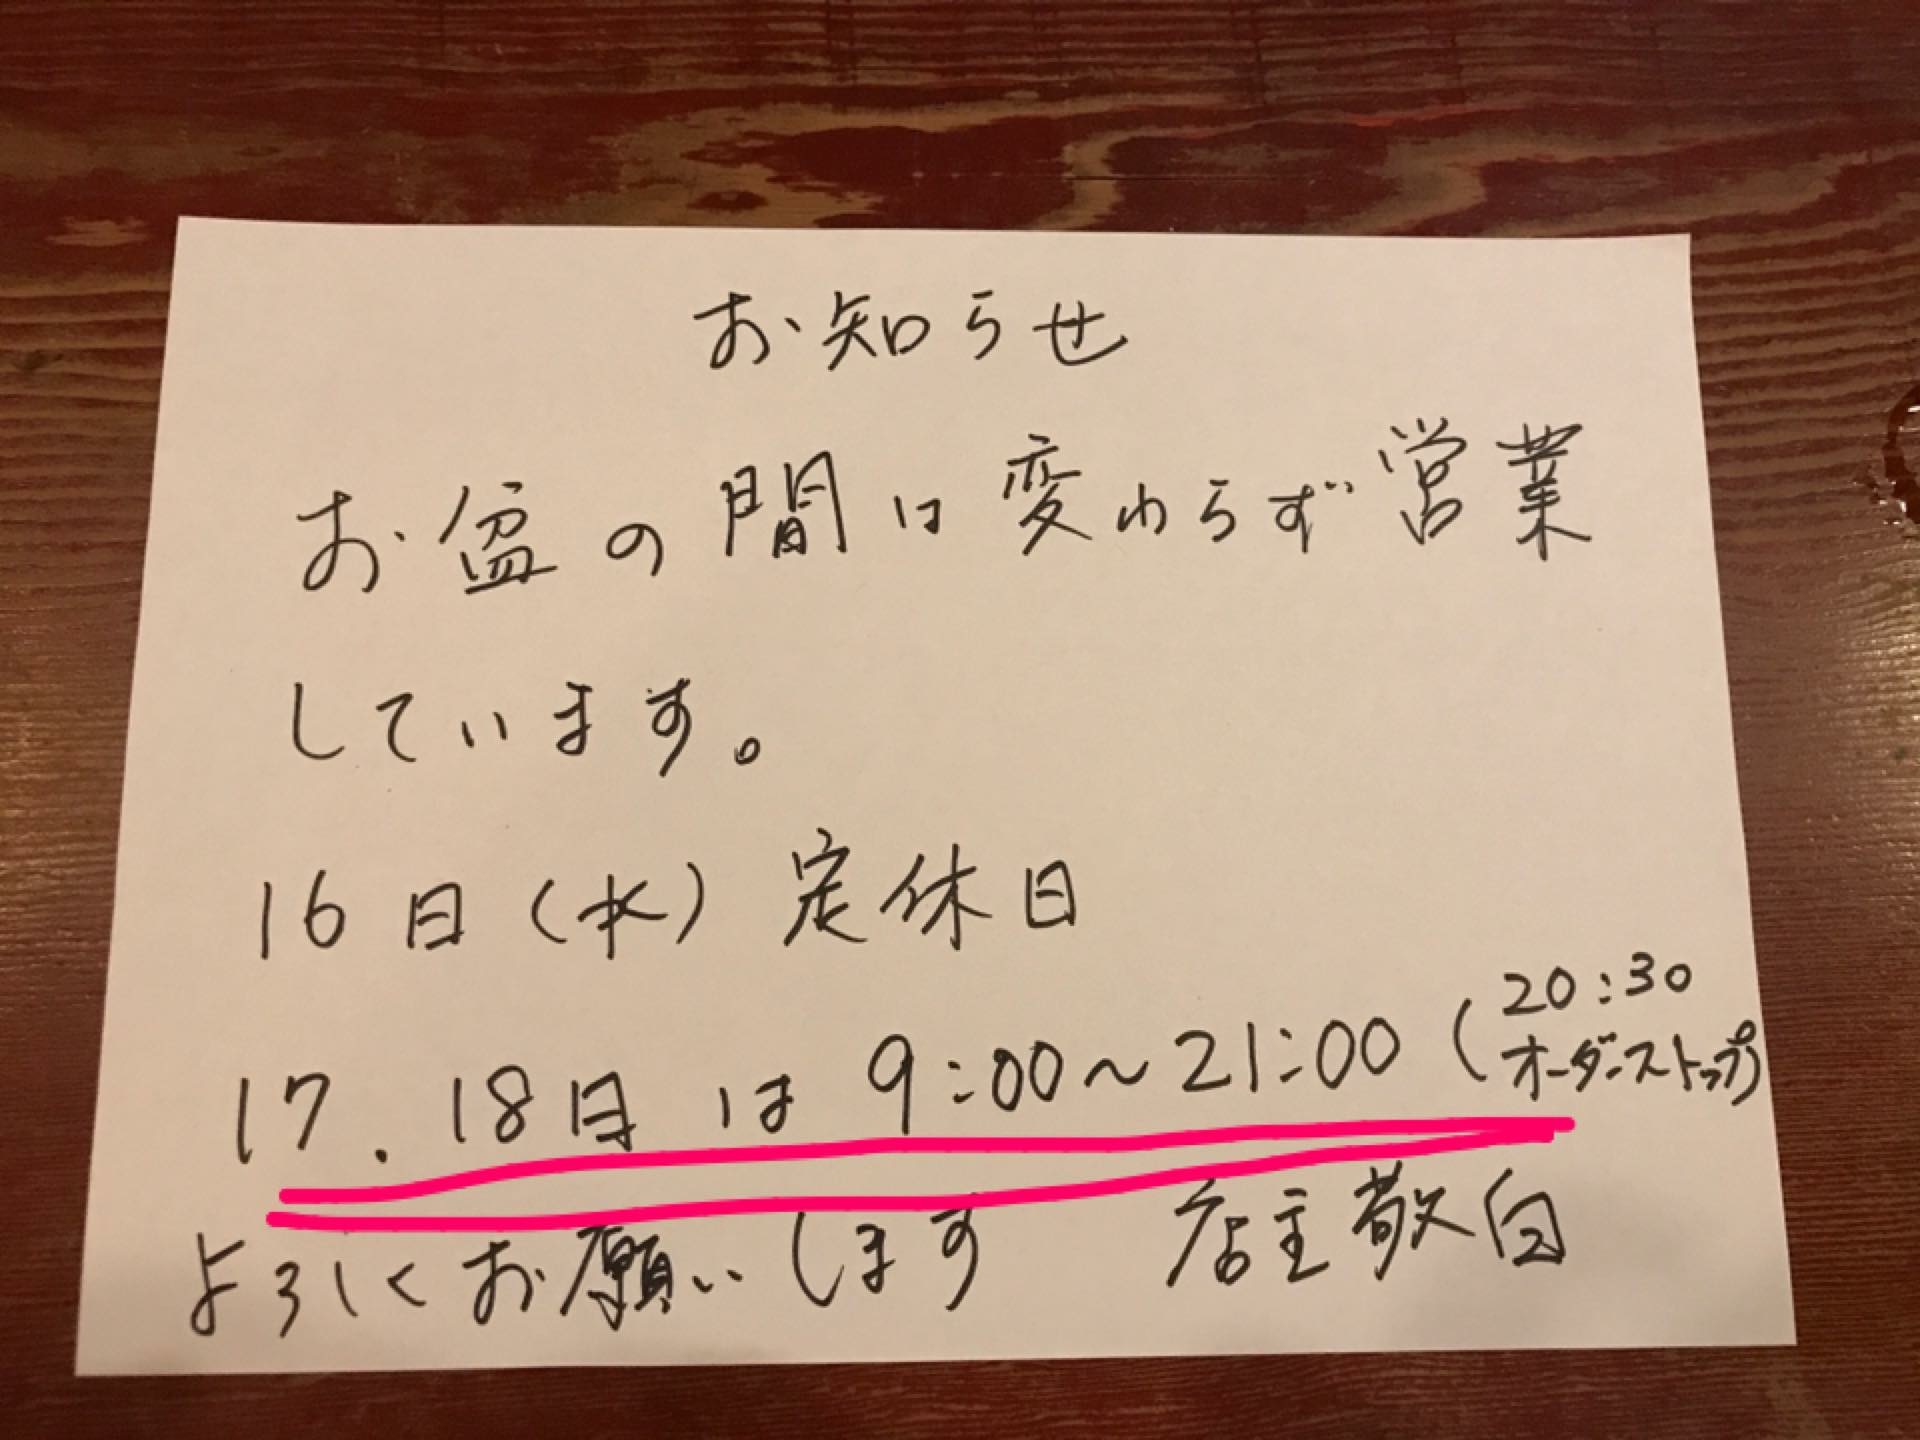 お知らせ
お盆の間は変わらず営業
しています。
16日(水)定休日
17.18日は9:00〜21:00(20:30
オーダーストップ)
よろしくお願いします 店主敬白